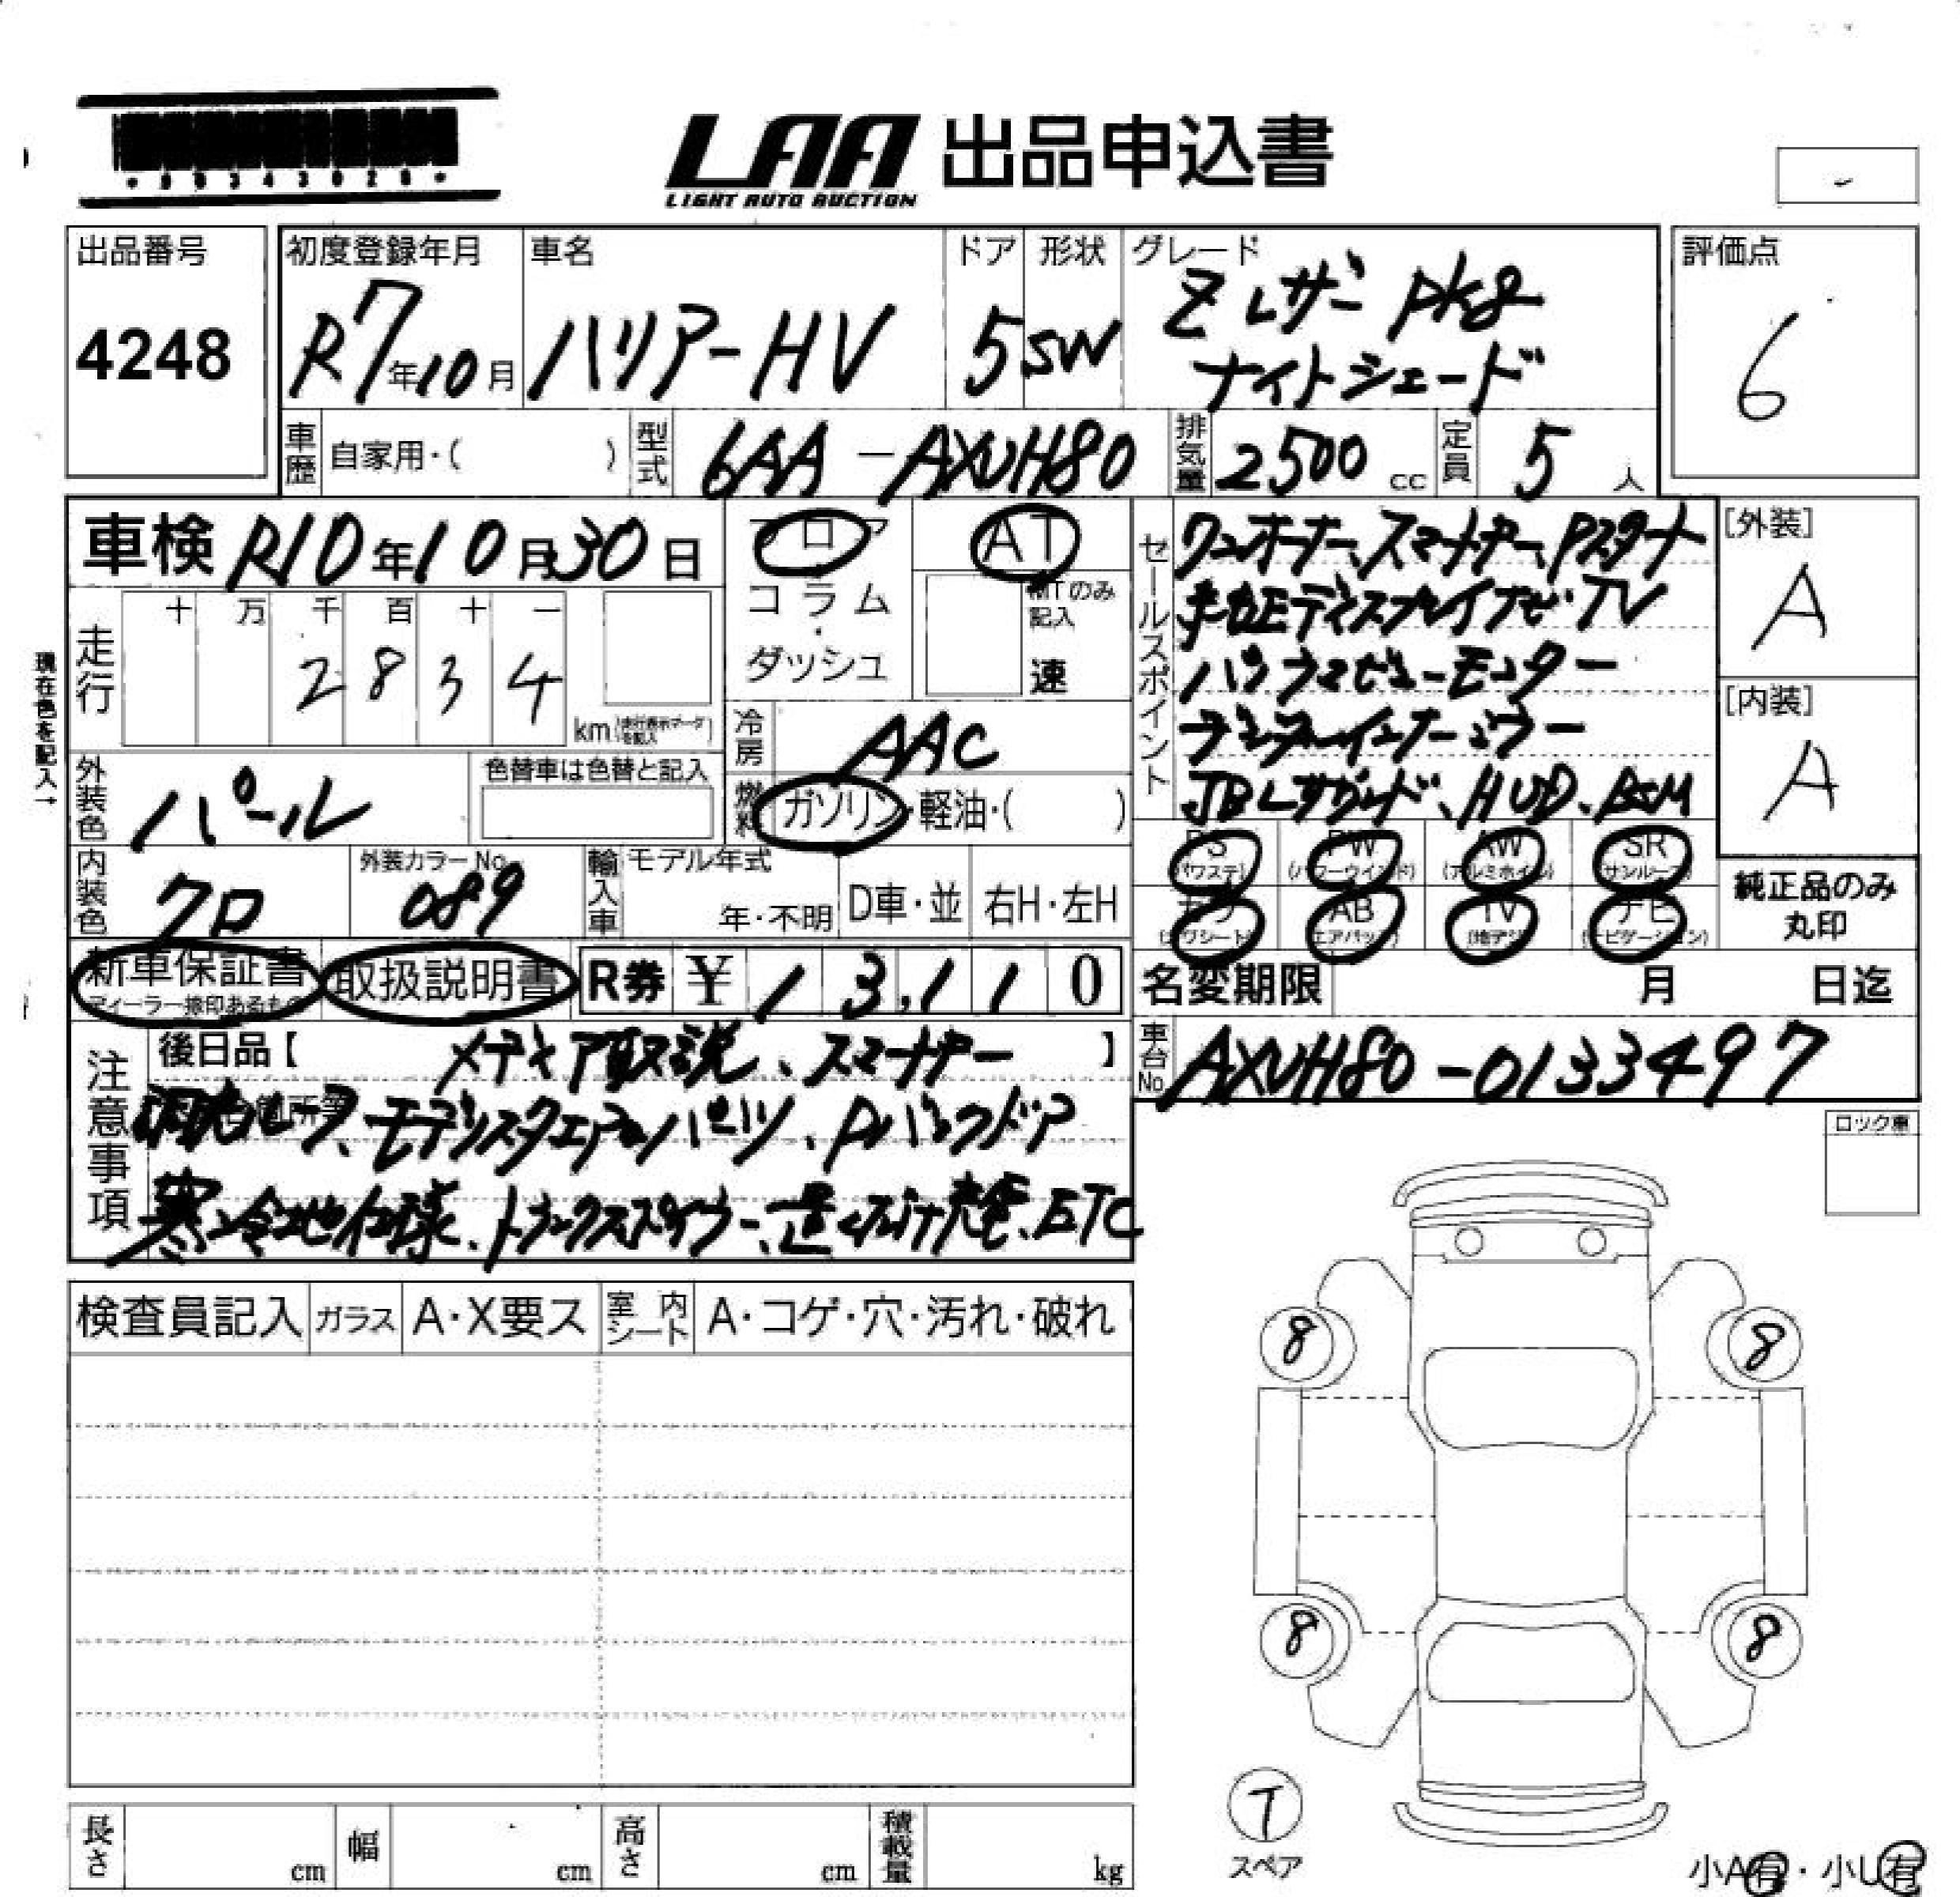 LAA 出品申込書
LIGHT AUTO AUCTION
出品番号
4248
初度登録年月
R7年10月
車名
ハリアーHV
ドア
5
形状
SW
グレード
Z レザー pkg
ナイトシェード
評価点
6
車歴 自家用・( )
型式 6AA-AXUH80
排気量 2500 cc
定員 5 人
車検 R10年10月30日
フロア
コラム
・
ダッシュ
AT
MTのみ記入
速
走行
十 万 千 百 十 一
2 8 3 4
km
現在色を記入→
冷房 AAC
燃料 ガソリン・軽油・( )
外装色 パール
色替車は色替と記入
内装色 クロ
外装カラーNo. 089
輸入車 モデル年式
年・不明
D車・並
右H・左H
セールスポイント
ワンオーナー、スマートキー、Pスタート
ディスプレイナビ・TV
パノラマビューモニター
デジタルインナーミラー
JBLサウンド、HUD、BSM
[外装]
A
[内装]
A
PS PW AW SR
(パワステ) (パワーウインド) (アルミホイル) (サンルーフ)
AB TV ナビ
(エアバック) (地デジ) (ナビゲーション)
純正品のみ
丸印
新車保証書
ディーラー捺印あるもの
取扱説明書
R券 ¥ 13,110
名変期限 月 日迄
車台No. AXUH80-0133497
注意事項
後日品【 メディア取説、スマートキー 】
モデリスタエアロパーツ、Pバックドア
寒冷地仕様、ETC
ロック車
検査員記入 ガラス A・X要ス 室内シート A・コゲ・穴・汚れ・破れ
8 8
8 8
T
スペア
長さ cm 幅 cm 高さ cm 積載量 kg
小A有・小U有